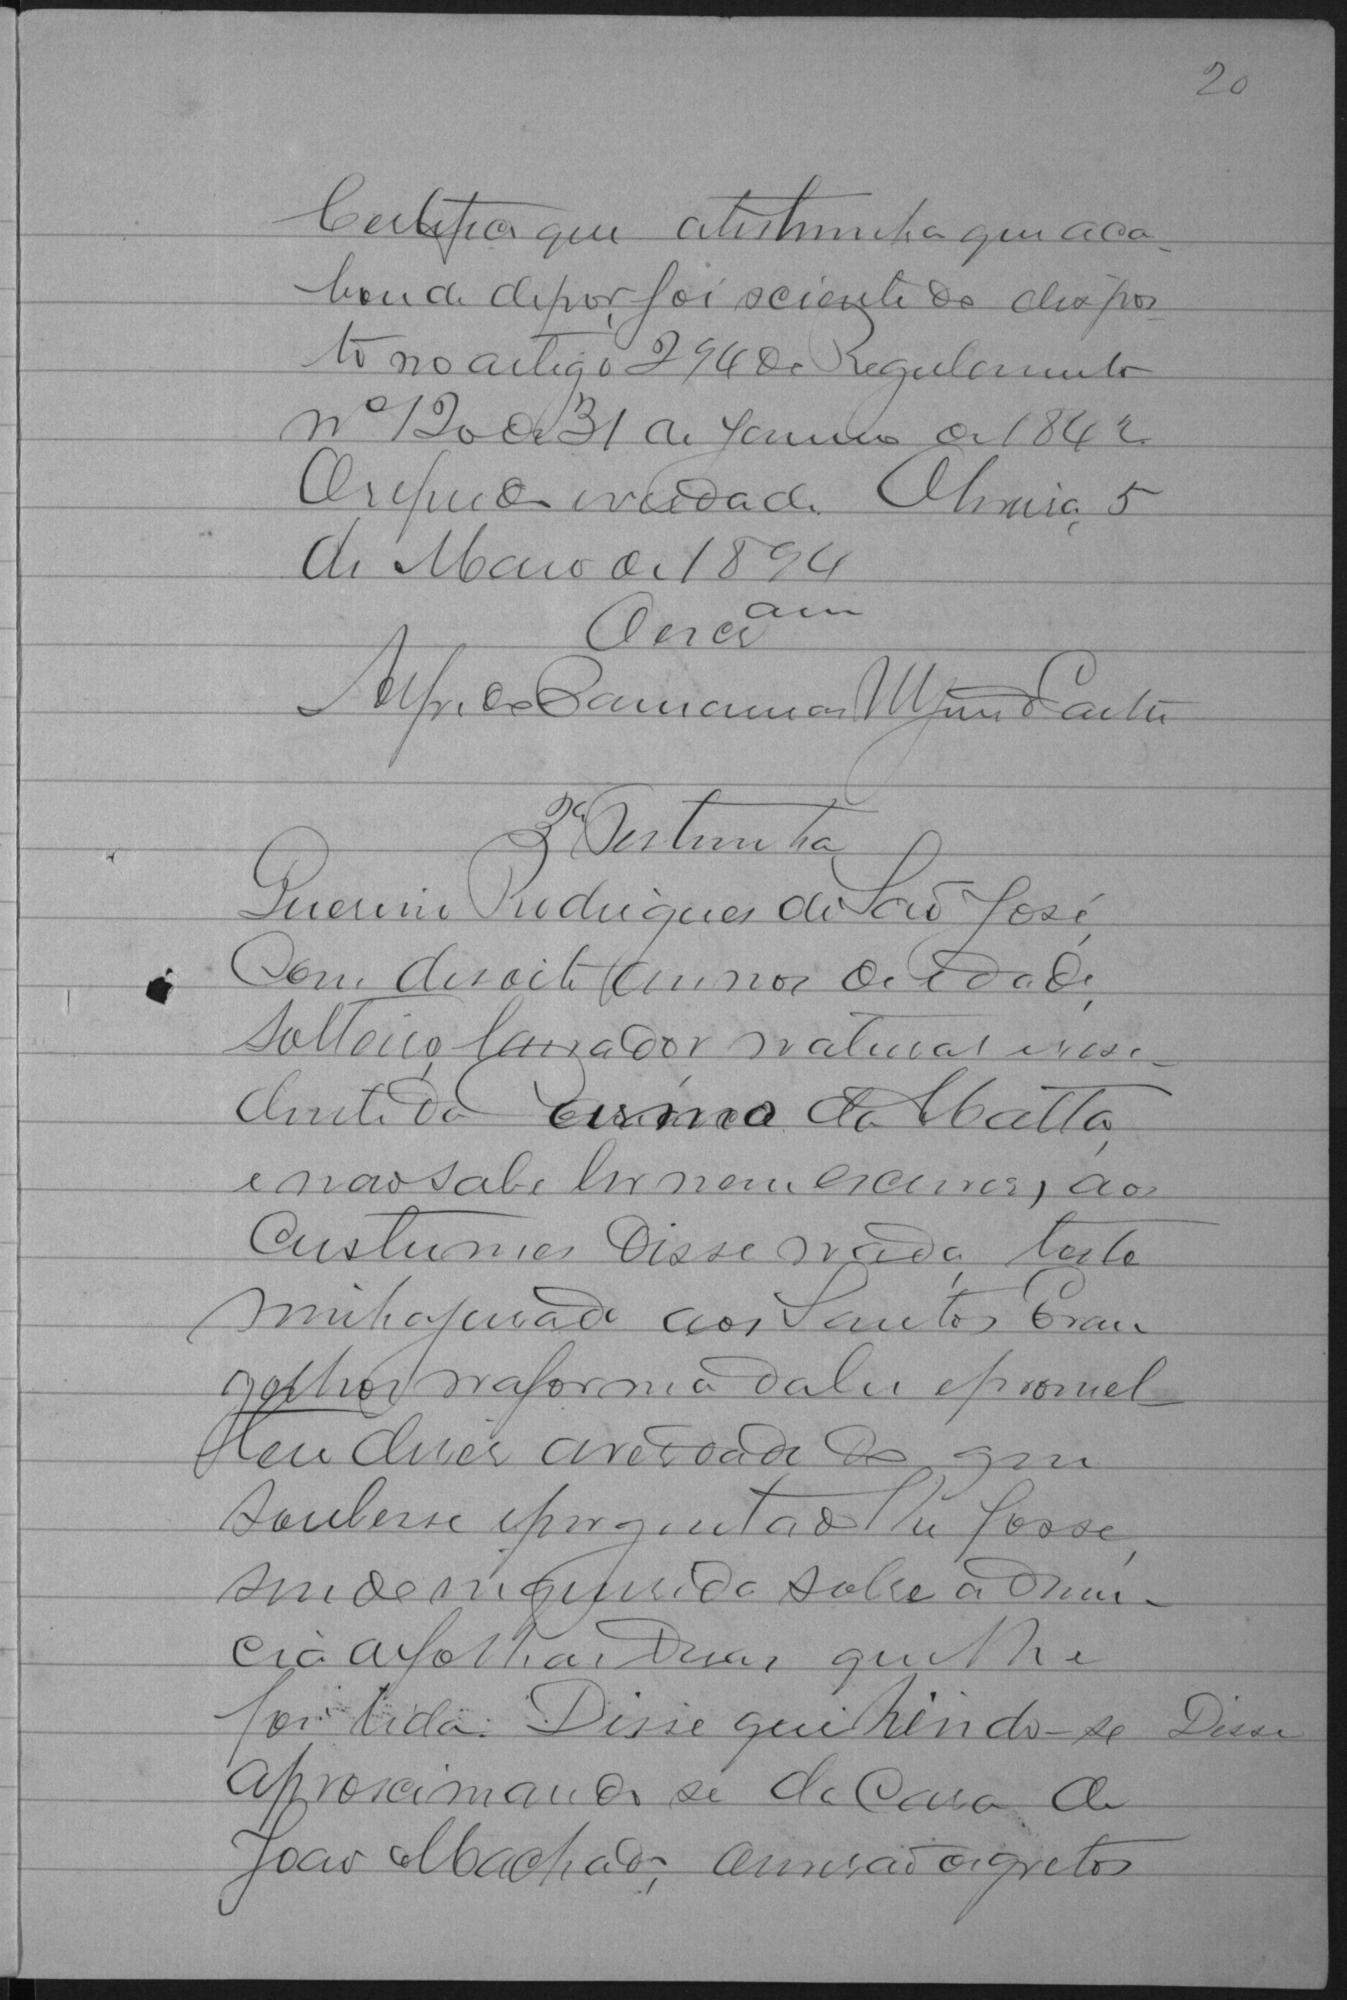 20
Certifico que atestemunha que aca-
bou de depor, foi sciente do dispos-
to no artigo 294 do Regulamento
nº 120 de 31 de Janeiro de 1842.
O referido é verdade. 5
de Março de 1894
O escram
Alfredo
3ª Testemunha
Rodrigues de São José,
Com desoito annos de edade,
solteiro, lavrador natural e resi-
dente do da Matta,
e não sabe ler nem escrever, aos
Custumes disse nada, teste
munha jurada aos Santos Evan
gelhos na forma da lei e promet-
teu diser a verdade do que
soubesse e perguntado lhe fosse,
sendo inquirida sobre a denun-
cia a folhas duas que lhe
foi lida. Disse que hindo-se Disse
aproximando se da Casa de
João Machado, gritos